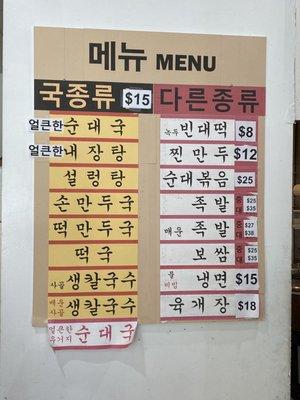 메뉴 MENU
국종류 $15
얼큰한 순대국
얼큰한 내장탕
설렁탕
손만두국
떡만두국
떡국
사골 생칼국수
매운 사골 생칼국수
얼큰한 우거지 순대국
다른종류
녹두 빈대떡 $8
찐만두 $12
순대볶음 $25
족발 중 $25 대 $35
매운 족발 중 $27 대 $38
보쌈 중 $25 대 $35
물 비빔 냉면 $15
육개장 $18